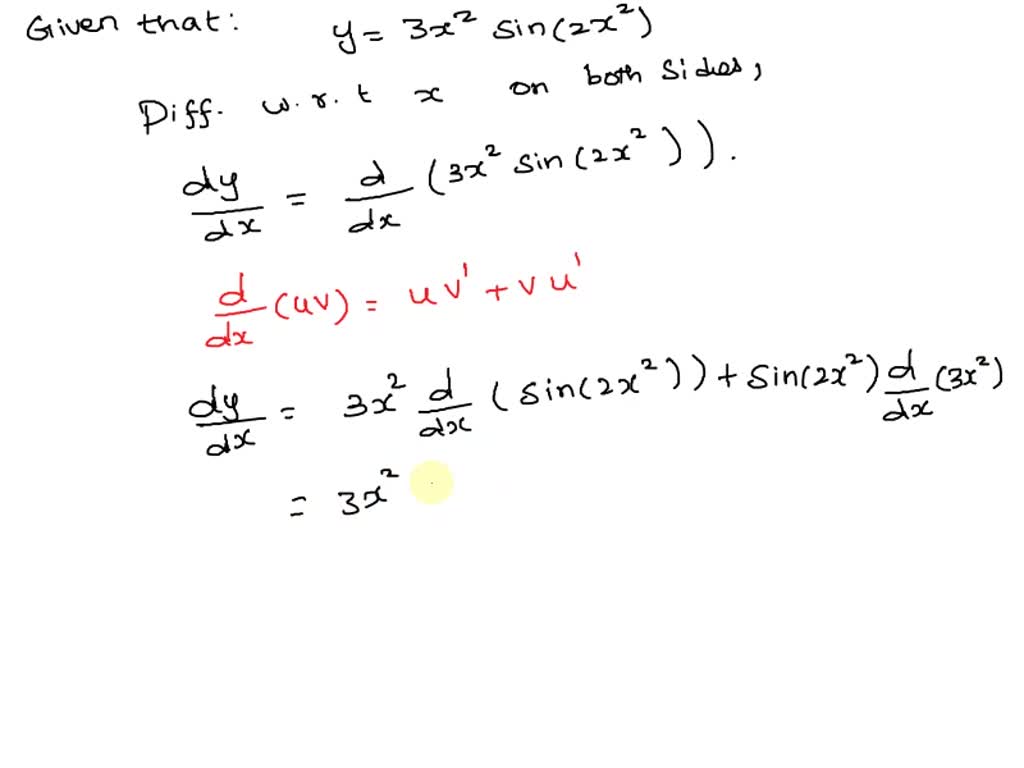 Given that: y = 3x² sin(2x²)
Diff. w.r.t x on both sides,
dy/dx = d/dx (3x² sin(2x²)).
d/dx (uv) = uv' + vu'
dy/dx = 3x² d/dx (sin(2x²)) + sin(2x²) d/dx (3x²)
= 3x²